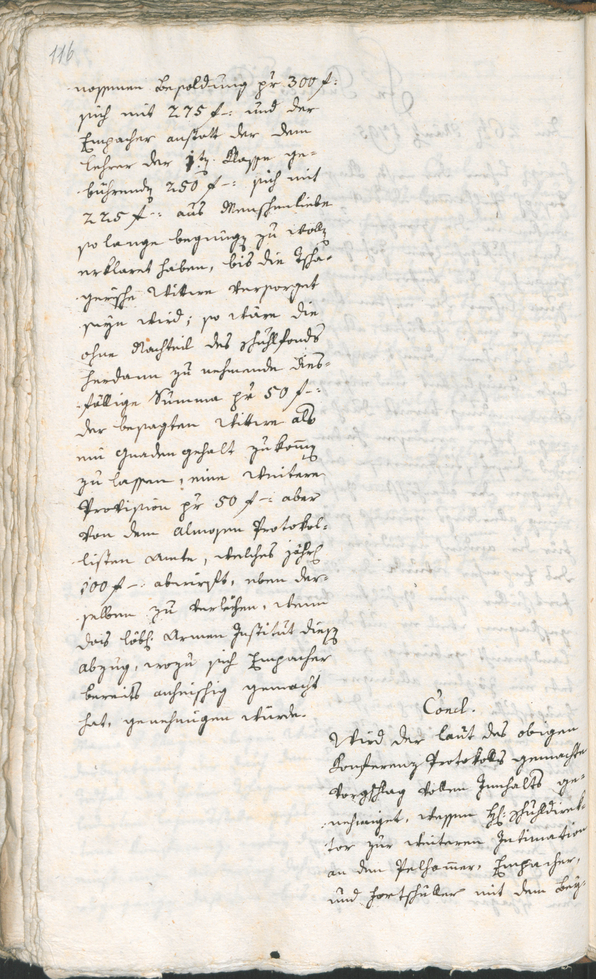 116
nossenen Besoldung pr 300 f:
sich mit 275 f-: und der
Empacher anstatt der dem
Lehrer der 1ten Classe ge-
bührendn 250 f-: sich mit
225 f-: aus Menschenliebe
so lange begnügn zu wolln
erklaret haben, bis die
gerische Wittwe versorget
seyn wird; so wäre die
ohne Nachteil des Schulfonds
herdann zu nehmende dies-
fällige Summa pr 50 f-:
der besagten Wittwe als
ein Gnadengehalt zukomn
zu lassen, eine weitere
Provision pr 50 f-: aber
von dem Almosen Protokol-
listen Amte, welches jährl
100 f-: abwirft, eben der-
selben zu verleihen, wenn
das löbl: Armen Institut diesn
abzug, wozu sich Empacher
bereits anheischig gemacht
hat, genehmigen würde.
Concl.
Wird der laut des obigen
Konferenz Protokolls gemachte
Vorschlag vollen Innhalts ge-
nehmiget, wessen H: Schuldirek-
tor zur weiteren Intimation
an den Pelhamer, Empacher,
und Hortschuller mit dem Bey-